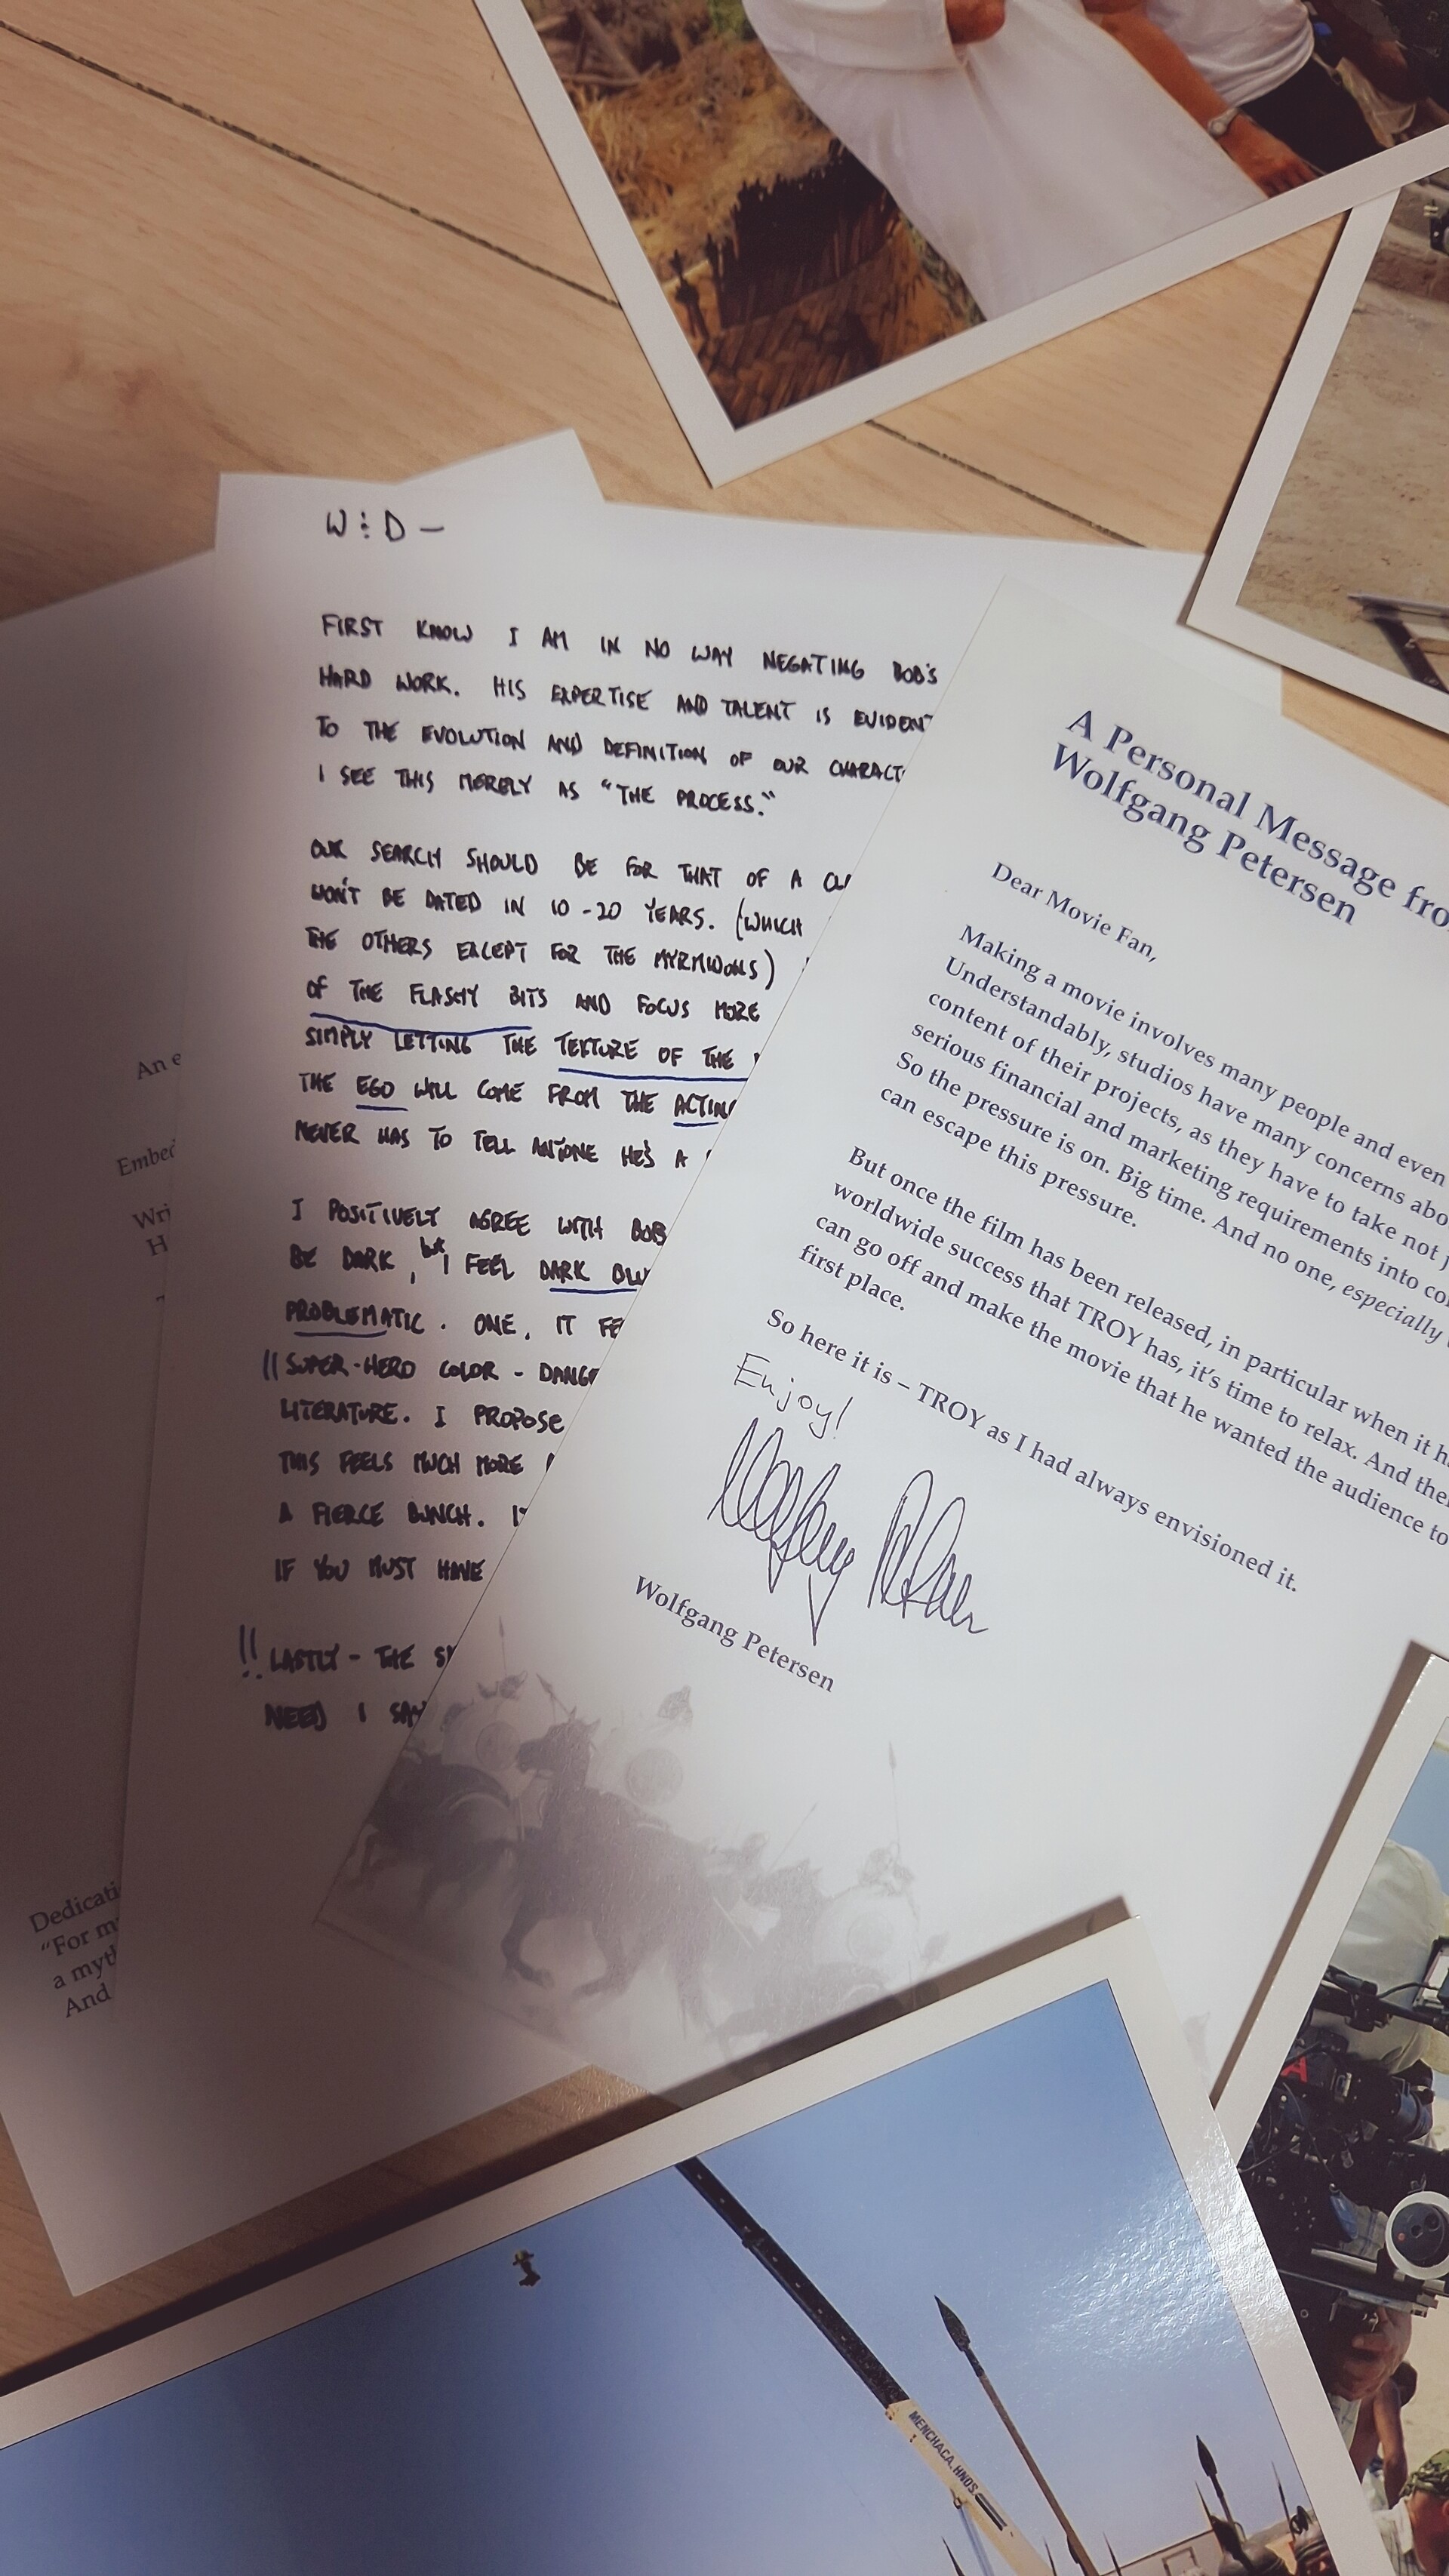 W & D —
FIRST KNOW I AM IN NO WAY NEGATING BOB'S
HARD WORK. HIS EXPERTISE AND TALENT IS EVIDENT
TO THE EVOLUTION AND DEFINITION OF OUR CHARACT
I SEE THIS MERELY AS "THE PROCESS."
OUR SEARCH SHOULD BE FOR THAT OF A
WON'T BE DATED IN 10-20 YEARS. (WHICH
THE OTHERS EXCEPT FOR THE MYRMIDONS)
OF THE FLASHY BITS AND FOCUS MORE
SIMPLY LETTING THE TEXTURE OF THE
THE EGO WILL COME FROM THE ACTING
NEVER HAS TO TELL ANYONE HE'S A
I POSITIVELY AGREE WITH BOB
BE DARK, but I FEEL DARK BLU
PROBLEMATIC. ONE, IT FE
SUPER-HERO COLOR - DANGE
LITERATURE. I PROPOSE
THIS FEELS MUCH MORE
A FIERCE BUNCH. IT
IF YOU MUST HAVE
!! LASTLY - THE S
NEED I SAY
A Personal Message fro
Wolfgang Petersen
Dear Movie Fan,
Making a movie involves many people and even
Understandably, studios have many concerns abo
content of their projects, as they have to take not j
serious financial and marketing requirements into co
So the pressure is on. Big time. And no one, especially
can escape this pressure.
But once the film has been released, in particular when it h
worldwide success that TROY has, it's time to relax. And the
can go off and make the movie that he wanted the audience to
first place.
So here it is – TROY as I had always envisioned it.
Enjoy!
Wolfgang Petersen
Wolfgang Petersen
An e
Embed
Wri
H
Dedicati
"For m
a myt
And
MENCHACA, HNOS.
A